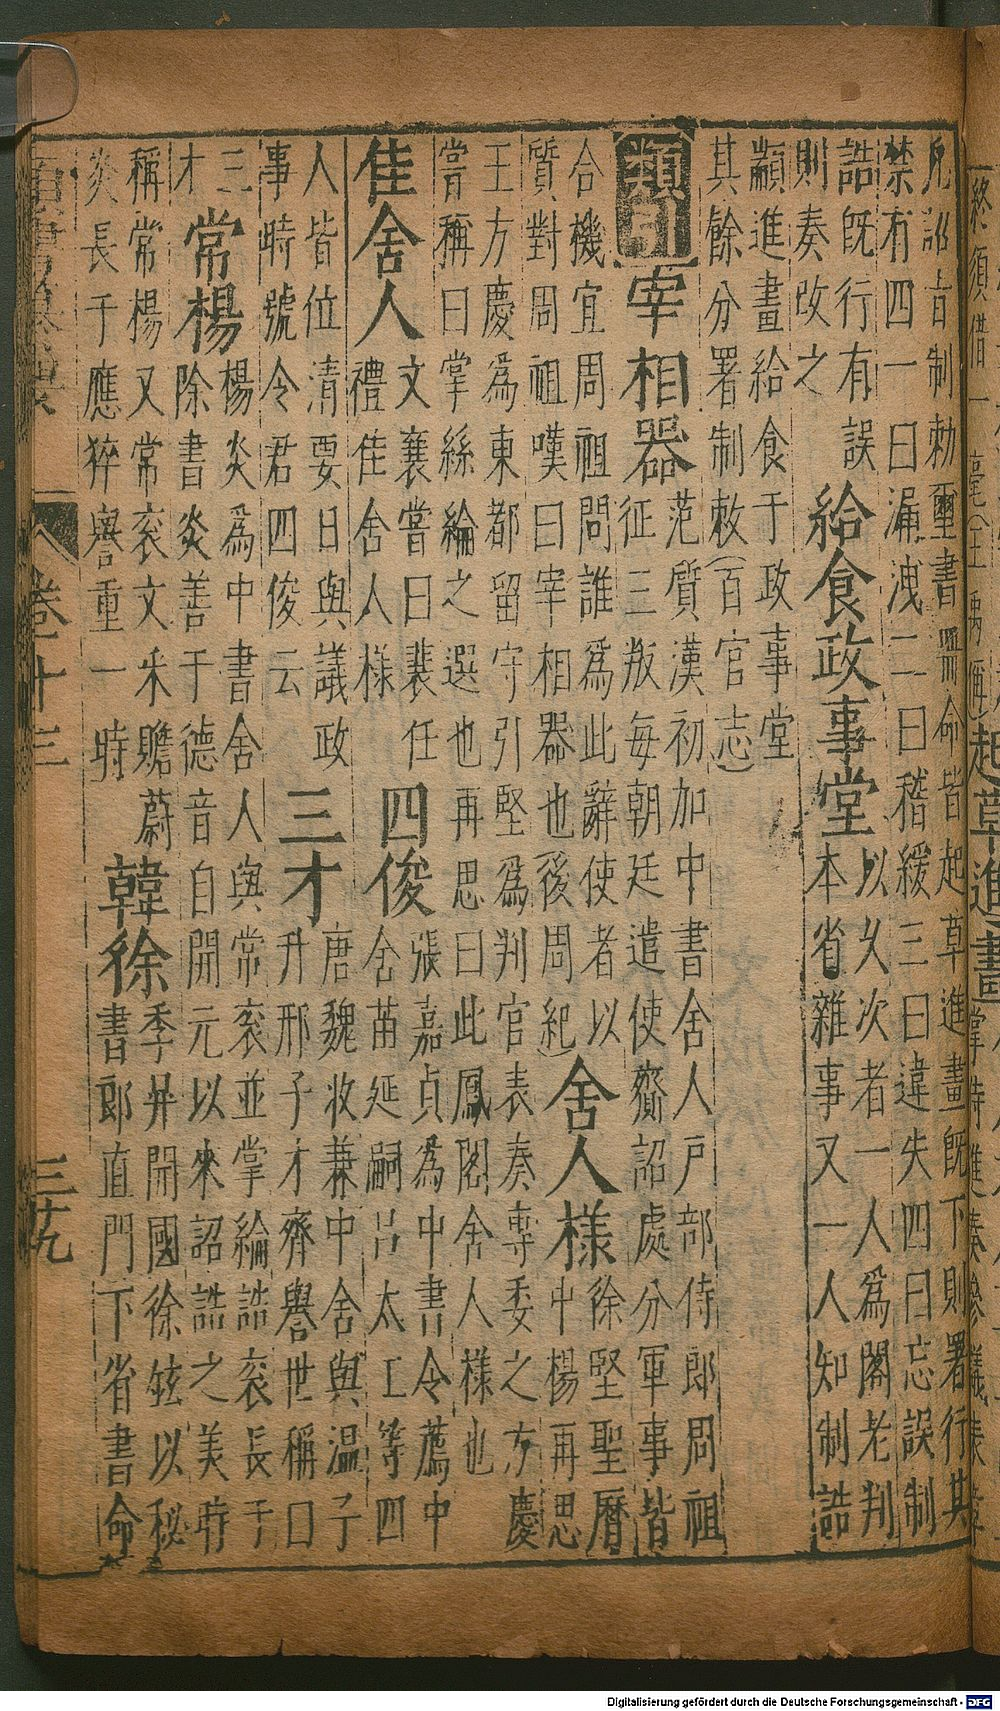 凡詔旨制勅璽書冊命皆起草進畫既下則署行其
禁有四一曰漏洩二曰稽緩三曰違失四曰忘誤制
誥既行有誤
則奏改之
給食政事堂
以久次者一人為閣老判
本省雜事又一人知制誥
顓進畫給食于政事堂
其餘分署制敕(百官志)
類目
宰相器
范質漢初加中書舍人戸部侍郎周祖
征三叛每朝廷遣使齎詔處分軍事皆
合機宜周祖問誰為此辭使者以
質對周祖嘆曰宰相器也(後周紀)
舍人樣
徐堅聖曆
中楊再思
王方慶為東都留守引堅為判官表奏專委之方慶
嘗稱曰掌絲綸之選也再思曰此鳳閣舍人樣也
佳舍人
文襄嘗曰裴任
禮佳舍人樣
四俊
張嘉貞為中書令薦中
舍苗延嗣呂太工等四
人皆位清要日與議政
事時號令君四俊云
三才
唐魏收兼中舍與溫子
升邢子才齊譽世稱曰
三
才
常楊
楊炎為中書舍人與常袞並掌綸誥袞長于
除書炎善于德音自開元以來詔誥之美時
稱常楊又常袞文采贍蔚
炎長于應猝譽重一時
韓徐
季丼開國徐鉉以秘
書郎直門下省書命
卷十三
三十九
Digitalisierung gefördert durch die Deutsche Forschungsgemeinschaft - DFG